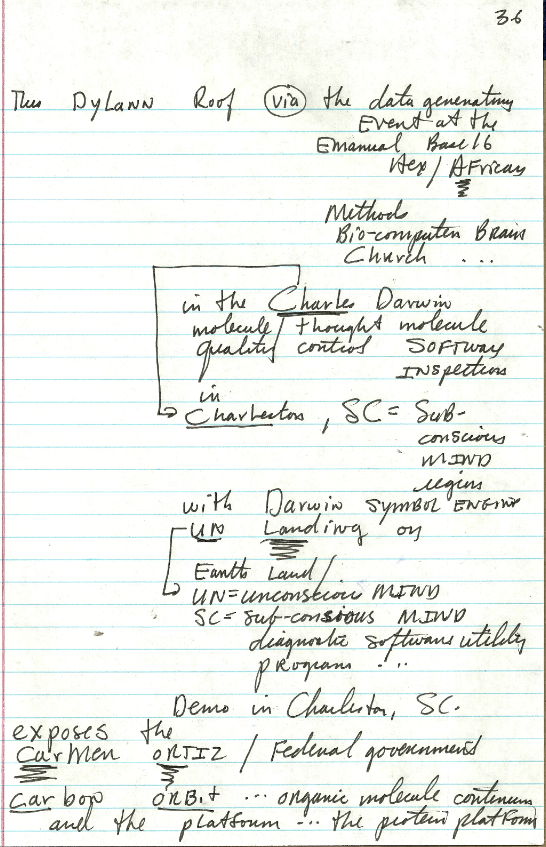 36
Thus Dylann Roof via the data generating
Event at the
Emanual Base 16
Hex / African
Methods
Bio-computer Brain
Church ...
in the Charles Darwin
molecule / thought molecule
quality control software
inspections
in
Charleston, SC = Sub-
conscious
MIND
region
with Darwin symbol engine
UN Landing on
Earth Land /
UN = unconscious MIND
SC = sub-consious MIND
diagnostic software utility
program ...
Demo in Charleston, SC.
exposes the
Carmen ORTIZ / Federal government
Carbon ORBit ... organic molecule continuum
and the platform ... the protein platform